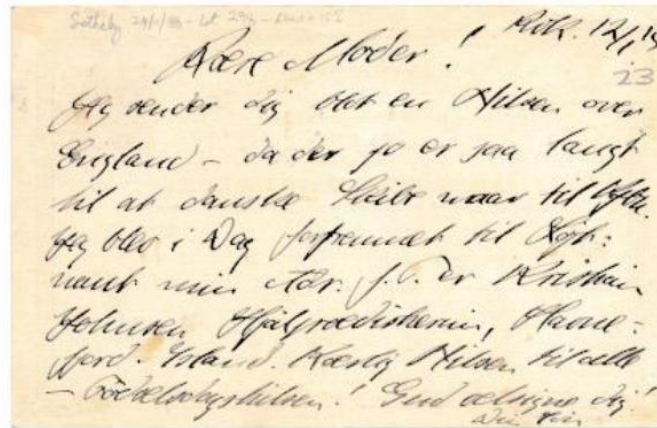 Sotheby 24/1/83 - Lot 293 -
Rvik. 12/1 19
23
Kære Moder!
Jeg sender dig blot en Hilsen over
England – da der jo er saa langt
til at danske Skibe naar til
Jeg blev i Dag forfremmet til Løjt-
nant min Adr. f. T. er Kristian
Johnsen Hjälpræðisherinn, Havne-
fjord. Island. Kærlig Hilsen til alle
– Fødselsdagshilsen! Gud velsigne dig!
Din